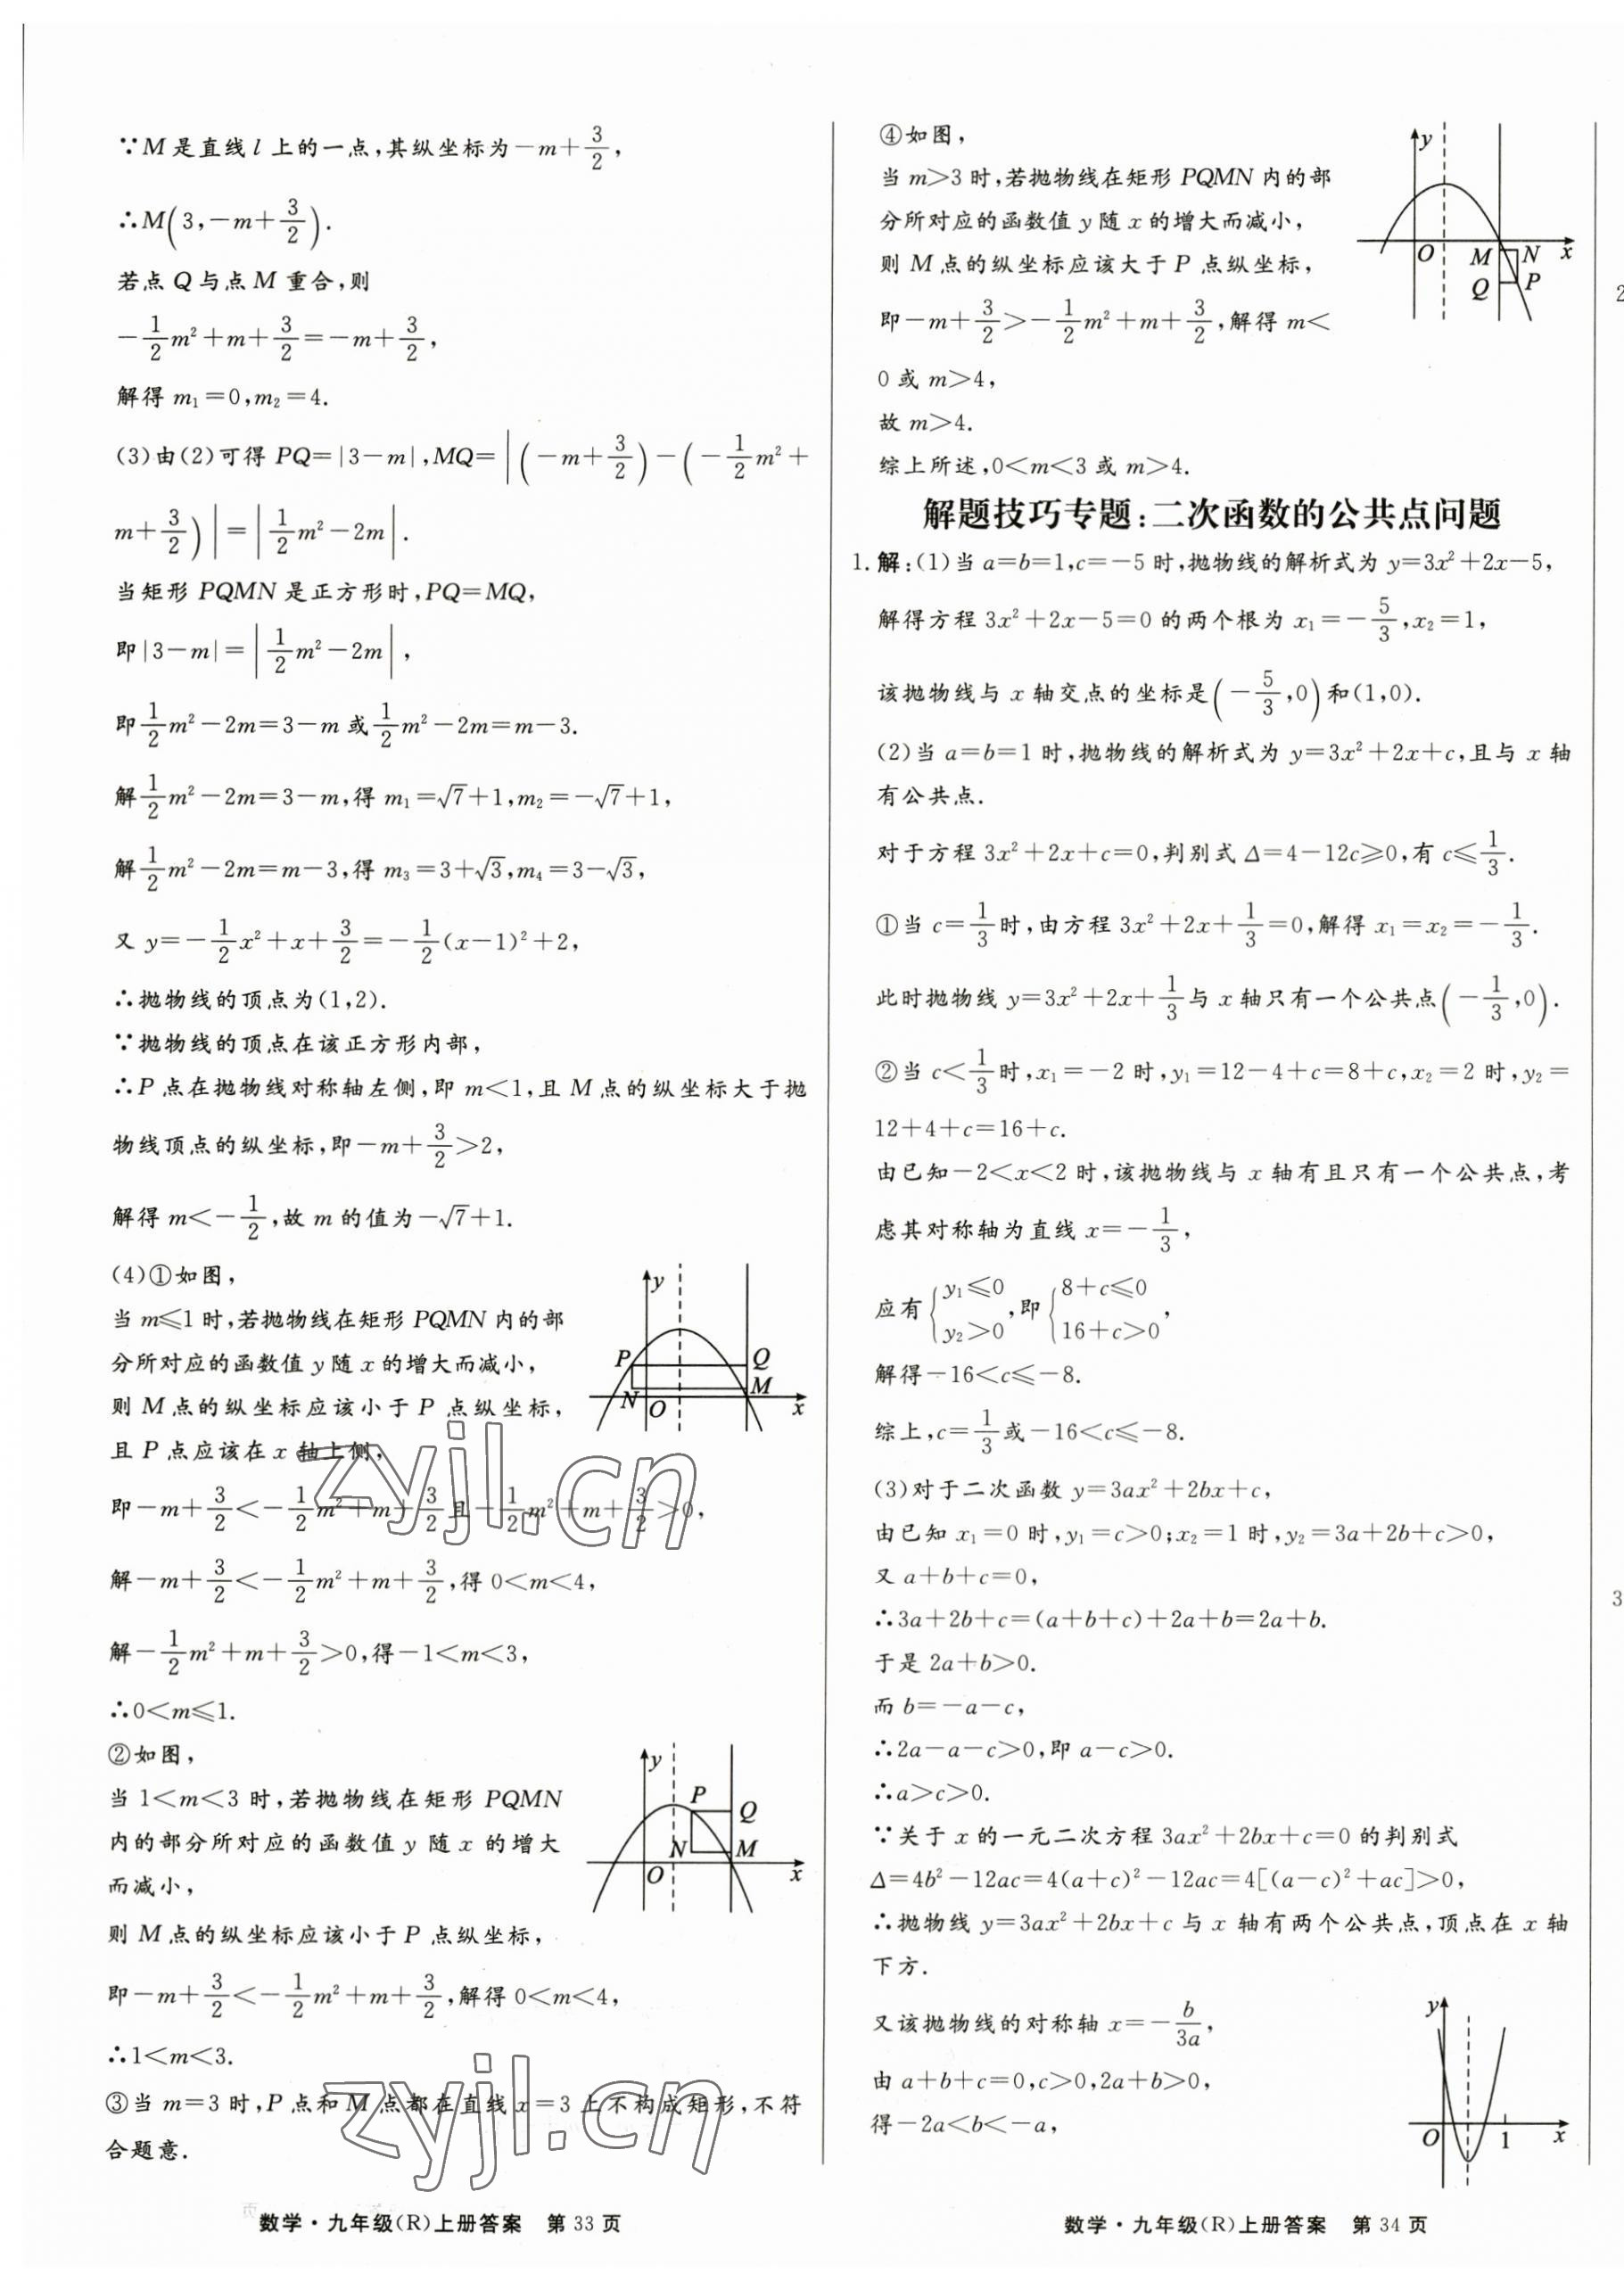 ∵M 是直线 l 上的一点,其纵坐标为−m+3/2,
∴M(3,−m+3/2).
若点 Q 与点 M 重合,则
−1/2m²+m+3/2=−m+3/2,
解得 m₁=0,m₂=4.
(3)由(2)可得 PQ=|3−m|,MQ=|(−m+3/2)−(−1/2m²+
m+3/2)|=|1/2m²−2m|.
当矩形 PQMN 是正方形时,PQ=MQ,
即|3−m|=|1/2m²−2m|,
即1/2m²−2m=3−m 或1/2m²−2m=m−3.
解1/2m²−2m=3−m,得 m₁=√7+1,m₂=−√7+1,
解1/2m²−2m=m−3,得 m₃=3+√3,m₄=3−√3,
又 y=−1/2x²+x+3/2=−1/2(x−1)²+2,
∴抛物线的顶点为(1,2).
∵抛物线的顶点在该正方形内部,
∴P 点在抛物线对称轴左侧,即 m<1,且 M 点的纵坐标大于抛
物线顶点的纵坐标,即−m+3/2>2,
解得 m<−1/2,故 m 的值为−√7+1.
(4)①如图,
当 m≤1 时,若抛物线在矩形 PQMN 内的部
分所对应的函数值 y 随 x 的增大而减小,
则 M 点的纵坐标应该小于 P 点纵坐标,
且 P 点应该在 x 轴上侧,
即−m+3/2<−1/2m²+m+3/2且−1/2m²+m+3/2>0,
解−m+3/2<−1/2m²+m+3/2,得 0<m<4,
解−1/2m²+m+3/2>0,得−1<m<3,
∴0<m≤1.
y
P
Q
N
O
M
x
②如图,
当 1<m<3 时,若抛物线在矩形 PQMN
内的部分所对应的函数值 y 随 x 的增大
而减小,
则 M 点的纵坐标应该小于 P 点纵坐标,
即−m+3/2<−1/2m²+m+3/2,解得 0<m<4,
∴1<m<3.
y
P
Q
N
M
O
x
③当 m=3 时,P 点和 M 点都在直线 x=3 上不构成矩形,不符
合题意.
zyjl.cn
zyjl.cn
数学·九年级(R)上册答案 第 33 页
④如图,
当 m>3 时,若抛物线在矩形 PQMN 内的部
分所对应的函数值 y 随 x 的增大而减小,
则 M 点的纵坐标应该大于 P 点纵坐标,
即−m+3/2>−1/2m²+m+3/2,解得 m<
0 或 m>4,
故 m>4.
综上所述,0<m<3 或 m>4.
y
O
M
N
x
Q
P
解题技巧专题:二次函数的公共点问题
1.解:(1)当 a=b=1,c=−5 时,抛物线的解析式为 y=3x²+2x−5,
解得方程 3x²+2x−5=0 的两个根为 x₁=−5/3,x₂=1,
该抛物线与 x 轴交点的坐标是(−5/3,0)和(1,0).
(2)当 a=b=1 时,抛物线的解析式为 y=3x²+2x+c,且与 x 轴
有公共点.
对于方程 3x²+2x+c=0,判别式 Δ=4−12c≥0,有 c≤1/3.
①当 c=1/3时,由方程 3x²+2x+1/3=0,解得 x₁=x₂=−1/3.
此时抛物线 y=3x²+2x+1/3与 x 轴只有一个公共点(−1/3,0).
②当 c<1/3时,x₁=−2 时,y₁=12−4+c=8+c,x₂=2 时,y₂=
12+4+c=16+c.
由已知−2<x<2 时,该抛物线与 x 轴有且只有一个公共点,考
虑其对称轴为直线 x=−1/3,
应有{y₁≤0 y₂>0,即{8+c≤0 16+c>0,
解得−16<c≤−8.
综上,c=1/3或−16<c≤−8.
(3)对于二次函数 y=3ax²+2bx+c,
由已知 x₁=0 时,y₁=c>0;x₂=1 时,y₂=3a+2b+c>0,
又 a+b+c=0,
∴3a+2b+c=(a+b+c)+2a+b=2a+b.
于是 2a+b>0.
而 b=−a−c,
∴2a−a−c>0,即 a−c>0.
∴a>c>0.
∵关于 x 的一元二次方程 3ax²+2bx+c=0 的判别式
Δ=4b²−12ac=4(a+c)²−12ac=4[(a−c)²+ac]>0,
∴抛物线 y=3ax²+2bx+c 与 x 轴有两个公共点,顶点在 x 轴
下方.
又该抛物线的对称轴 x=−b/3a,
由 a+b+c=0,c>0,2a+b>0,
得−2a<b<−a,
y
O
1
x
数学·九年级(R)上册答案 第 34 页
2
3